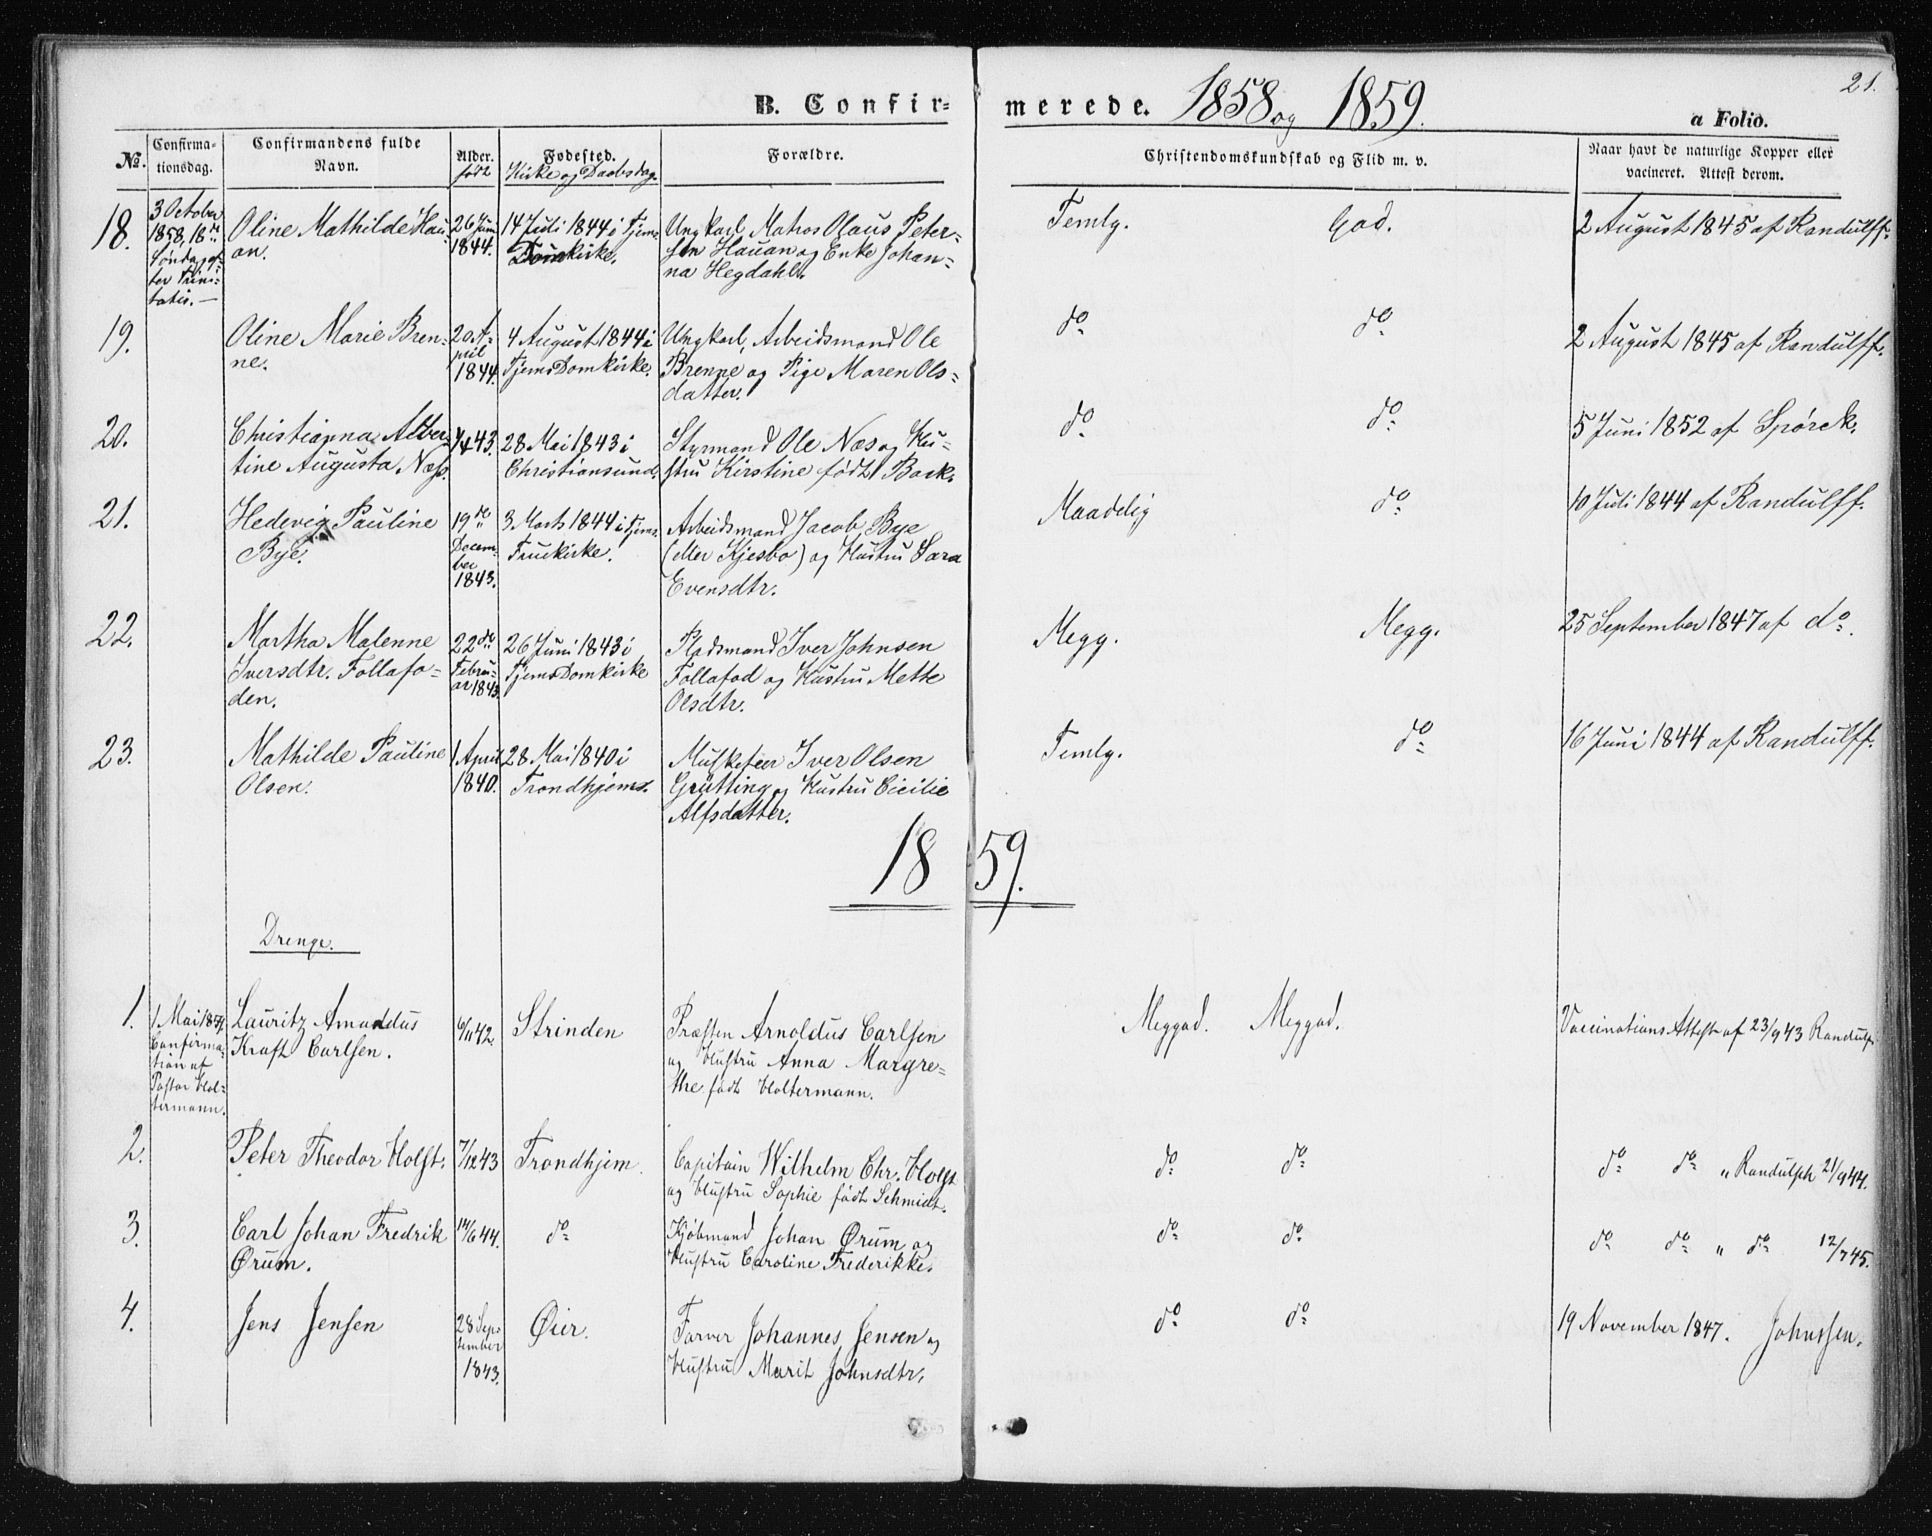 21.
B. Confirmerede. 1858 og 1859. a Folio.
No. Confirmationsdag. Confirmandens fulde Navn. Alder. født Fødested. Kirke og Daabsdag. Forældre. Christendomskundskab og Flid m. v. Naar havt de naturlige Kopper eller vacineret. Attest derom.
18. 3 October 1858, 18de Søndag efter Trinitatis. —
Oline Mathilde Hauan.
26 Juni 1844.
14 Juli 1844 i Tjems Domkirke.
Ungkarl, Matros Olaus Petersen Hauan og Enke Johanna Hegdahl.
Temlg. God.
2 August 1845 af Randulff.
19. Oline Marie Brenne.
20 April 1844.
4 August 1844 i Tjems Domkirke.
Ungkarl, Arbeidsmand Ole Brenne og Pige Maren Olsdatter.
do do
2 August 1845 af Randulff.
20. Christianna Albertine Augusta Næss.
4/4 43.
28 Mai 1843 i Christiansund.
Styrmand Ole Næs og Hustru Kirstine født Back.
do do
5 Juni 1852 af Spørck.
21. Hedevig Pauline Bye.
19de December 1843.
3 Marts 1844 i Tjems Fruekirke.
Arbeidsmand Jacob Bye (eller Kjesbo) og Hustru Sara Evensdtr.
Maadelig do
10 Juli 1844 af Randulff.
22. Martha Malenne Iversdtr. Follafoden.
22de Februar 1843.
26 Juni 1843 i Tjems Domkirke
Pladsmand Iver Johnsen Follafod og Hustru Mette Olsdtr.
Megg. Megg.
25 September 1847 af do.
23. Mathilde Pauline Olsen.
1 April 1840.
28 Mai 1840 i Trondhjems.
Musketeer Iver Olsen Grütting og Hustru Cicilie Alfsdatter.
Temlg. do
16 Juni 1844 af Randulff.
1859.
Drenge.
1. 1 Mai 1859. Confirmation af Pastor Holtermann.
Lauritz Amandus Kraft Carlsen.
6/11 42.
Strinden
Præsten Arnoldus Carlsen og Hustru Anna Margrethe født Holtermann.
Meggod. Meggod.
Vaccinations Attest af 23/9 43 Randulph
2. Peter Theodor Holst.
7/12 43
Trondhjem.
Capitain Wilhelm Chr. Holst og Hustru Sophie født Schmidt.
do do
do do " Randulph 21/9 44.
3. Carl Johan Fredrik Ørum.
14/6 44.
do
Kjøbmand Johan Ørum og Hustru Caroline Frederikke.
do do
do do " do 12/7 45.
4. Jens Jensen
28 September 1843.
Øier.
Farver Johannes Jensen og Hustru Marit Johnsdtr.
do do
19 November 1847. Johnssen.